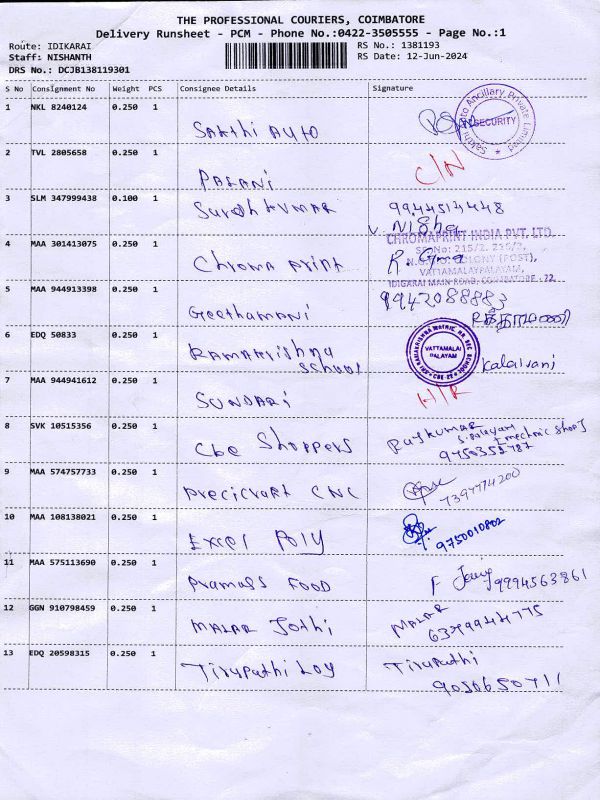 THE PROFESSIONAL COURIERS, COIMBATORE
Delivery Runsheet - PCM - Phone No.:0422-3505555 - Page No.:1
Route: IDIKARAI RS No.: 1381193
Staff: NISHANTH RS Date: 12-Jun-2024
DRS No.: DCJB138119301
S No Consignment No Weight PCS Consignee Details Signature
1 NKL 8240124 0.250 1 Sakthi Auto
SECURITY
2 TVL 2805658 0.250 1 Palani C/N
3 SLM 347999438 0.100 1 Suresh kumar
Nisha
CHROMAPRINT INDIA PVT. LTD
4 MAA 301413075 0.250 1 Chroma print
VATTAMALAYPALAYAM,
IDIGARAI MAIN ROAD, COIMBATORE - 22
5 MAA 944913398 0.250 1 Geethamani 9942088883
6 EDQ 50833 0.250 1 Ramakrishna School
VATTAMALAI PALAYAM
Kalaivani
7 MAA 944941612 0.250 1 Sundari
8 SVK 10515356 0.250 1 Cbe Shoppers Rajkumar
9750353787
9 MAA 574757733 0.250 1 Precicraft CNC 7397774200
10 MAA 108138021 0.250 1 Excel Poly 9750010802
11 MAA 575113690 0.250 1 Pramass Food 9994563861
12 GGN 910798459 0.250 1 Malar Jothi Malar
13 EDQ 20598315 0.250 1 Tirupathi Loy Tirupathi
9050650711